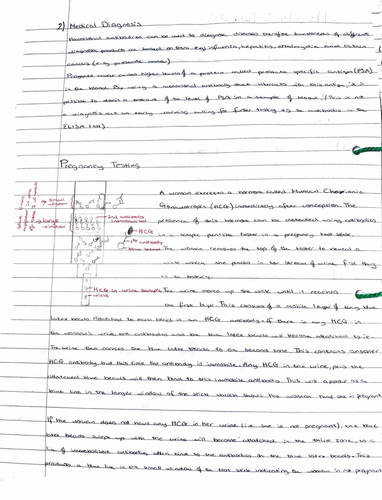 2) Medical Diagnosis
Monoclonal antibodies can be used to diagnose diseases therefore hundreds of different
diagnostic products are based on them e.g influenza, hepatitis, chlamydia and certain
cancers (e.g. prostate cancer).
Prostate cancer causes higher levels of a protein called prostate specific antigen (PSA)
in the blood. By using a monoclonal antibody that interacts with this antigen, it is
possible to obtain a measure of the level of PSA in a sample of blood. (This is not
a diagnosis but an early warning calling for further testing e.g. the antibodies in the
ELISA test).
Pregnancy Testing
small window
large window
2nd antibody immobilised
HCG
1st antibody
blue bead
HCG in urine sample
urine
A woman excretes a hormone called Human Chorionic
Gonadotropin (HCG) immediately after conception. The
presence of this hormone can be detected using antibodies
in a simple pencil test in a pregnancy test stick.
The woman removes the top of the tester to reveal a
wick which she places in her stream of urine first thing
in a morning.
The urine moves up the wick until it reaches
the first layer. This consists of a mobile layer of tiny blue
latex beads. Attached to each bead is an HCG antibody. If there is any HCG in
the woman's urine, the antibodies and the blue latex beads will become attached to it.
The urine then carries the blue latex beads to the second zone. This contains another
HCG antibody, but this time the antibody is immobile. Any HCG in the urine, plus the
attached blue beads will then bind to this immobile antibody. This will appear as a
blue line in the larger window of the stick which shows the woman that she is pregnant
If the woman does not have any HCG in her urine (i.e. she is not pregnant), the blue
latex beads swept up with the urine will become attached in the third zone, to a
line of immobilised antibodies which bind to the antibodies on the blue latex beads. This
produces a blue line in the small window of the test stick indicating the woman is not pregnant